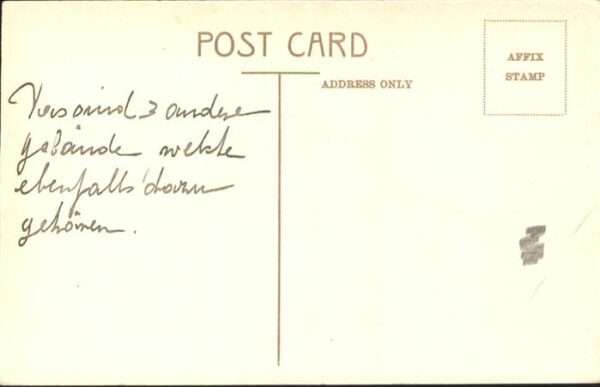 POST CARD
ADDRESS ONLY
AFFIX
STAMP
3 andere
gebäude welche
ebenfalls dazu
gehören.